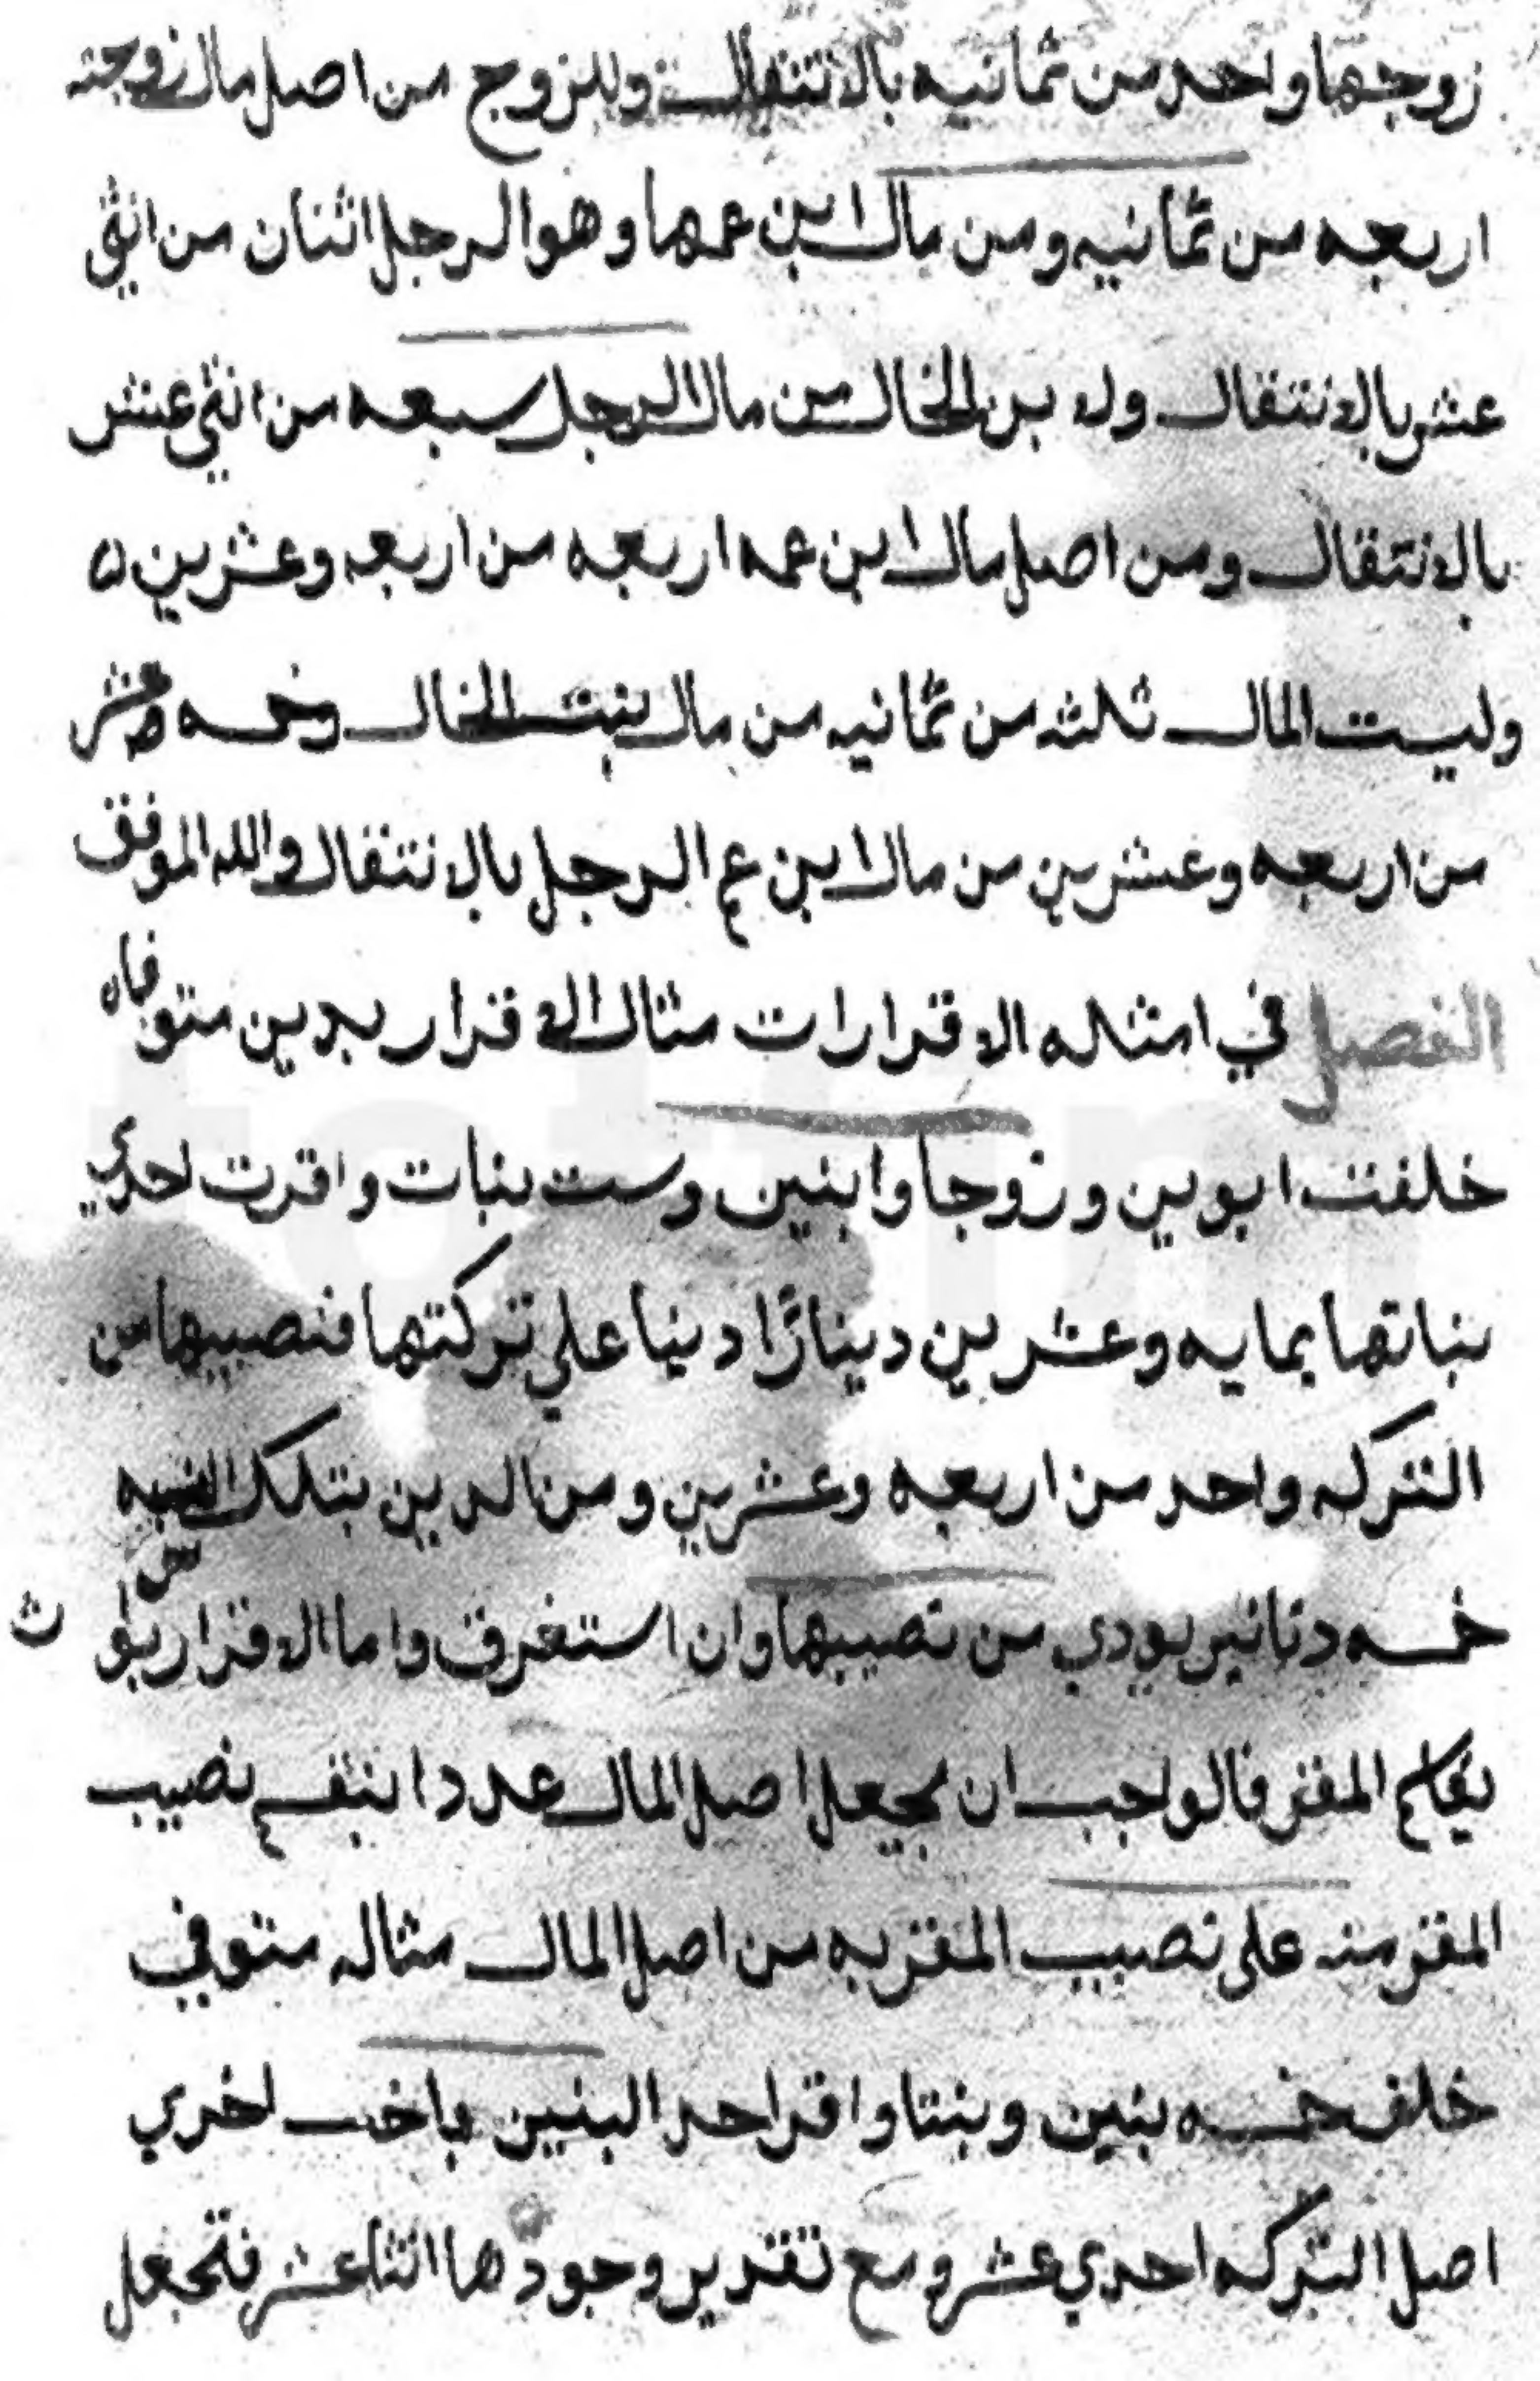 زوجها واحد من ثمانيه بالانتقال وللزوج من اصل مال زوجته
اربعه من ثمانيه ومن مال ابن عمها وهو الرجل اثنان من اثني
عشر بالانتقال ولابن الخال من مال الرجل سبعه من اثني عشر
بالانتقال ومن اصل مال ابن عمه اربعه من اربعه وعشرين
ولبيت المال ثلثه من ثمانيه من مال بنت الخال وخمسه وعشر
من اربعه وعشرين من مال ابن عم الرجل بالانتقال والله الموفق
الفصل في امثله الاقرارات مثال الاقرار بدين متوفاه
خلفت ابوين وزوجا وابنين وست بنات واقرت احدي
بناتها بمايه وعشرين دينارًا دينا علي تركتها فنصيبها من
التركه واحد من اربعه وعشرين ومن الدين بتلك النسبه
خمسه دنانير يودي من نصيبها وان استغرق واما الاقرار بوارث
يقاسم المقر فالواجب ان يجعل اصل المال عددا ينقسم نصيب
المقر منه على نصيب المقر به من اصل المال مثاله متوفي
خلف خمسه بنين وبنتا واقر احد البنين باخت اخري
اصل التركه احدي عشر ومع تقدير وجودها اثنا عشر فتجعل